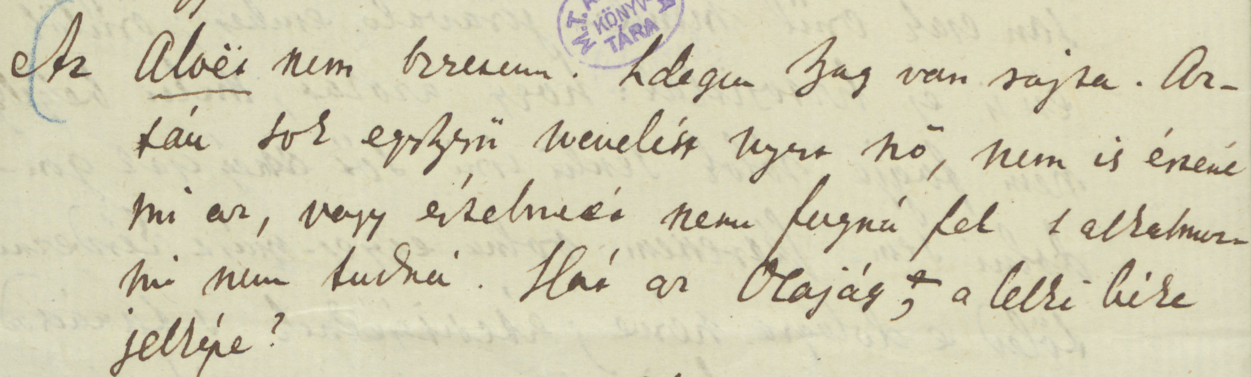 M.T.A. KÖNYVTÁRA
Az Aloët nem szeretem. Idegen hang van rajta. Az-
tán sok egyszerü nevelést nyert nő, nem is értené
mi az, vagy értelmét nem fogná fel s alkalmaz-
ni nem tudná. Hát az Olajág, a lelki béke
jelképe?